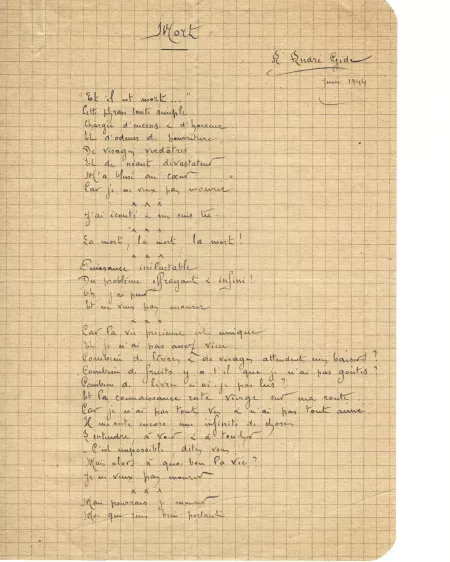 Mort
à André Gide
juin 1944
"Et il est mort..."
Cette phrase toute simple
Chargée d'encens & d'horreur
Et d'odeurs de pourriture
De visages verdâtres
Et de néant dévastateur
M'a blessé au cœur
Car je ne veux pas mourir
x x x
J'ai écouté & me suis tu
x x x
La mort, la mort la mort !
x x x
Puissance inéluctable
Du problème effrayant & infini !
Eh j'ai peur
Et ne veux pas mourir
x x x
Car la vie précieuse est unique
Et je n'ai pas assez vécu
Combien de lèvres & de visages attendent mes baisers ?
Combien de fruits y a t'il que je n'ai pas goûtés ?
Combien de livres n'ai-je pas lus ?
Et la connaissance reste vierge sur ma route
Car je n'ai pas tout vu & n'ai pas tout aimé
Il me reste encore une infinité de choses
à entendre à voir & à toucher
- C'est impossible dites vous
Mais alors à quoi bon la vie ?
Je ne veux pas mourir
x x x
Mais pourrais je mourir
Moi qui suis bien portant